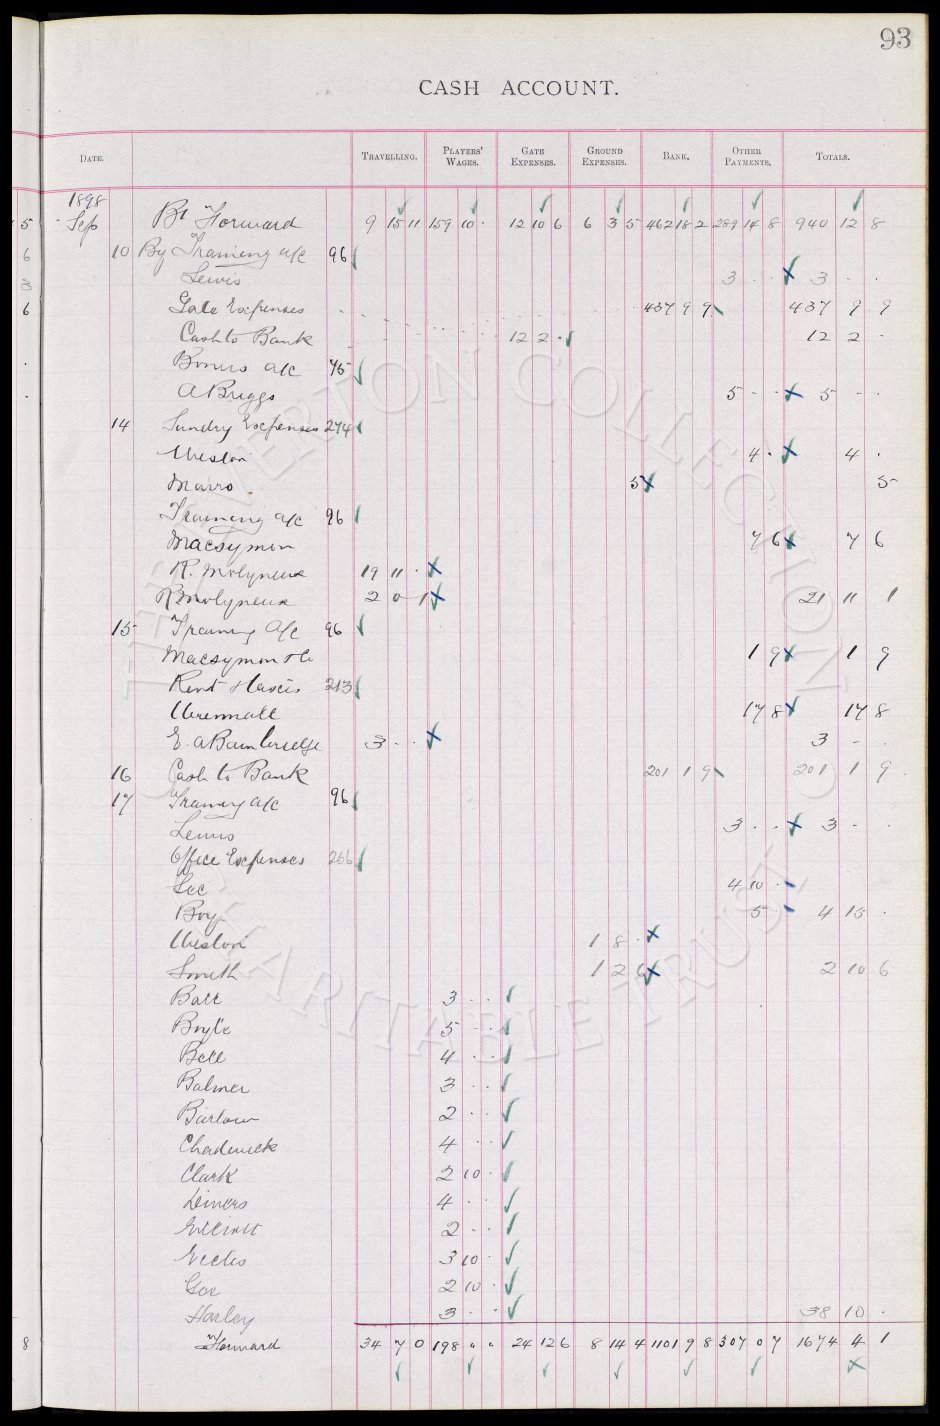 93
CASH ACCOUNT.
DATE. TRAVELLING. PLAYERS' WAGES. GATE EXPENSES. GROUND EXPENSES. BANK. OTHER PAYMENTS. TOTALS.
1898
5 Sep Bt Forward 9 15 11 159 10 · 12 10 6 6 3 5 462 18 2 289 14 8 940 12 8
6 10 By Training a/c 96
3 Lewis 3 · · 3 · ·
6 Gate Expenses 437 9 9 437 9 9
Cash to Bank 12 2 · 12 2 ·
a/c 45
A Briggs 5 · · 5 - ·
14 Sundry Expenses 274
Weston 4 · 4 ·
5 5
Training a/c 96
Macsymon 7 6 7 6
R. Molyneux 19 11 ·
R Molyneux 2 0 1 21 11 1
15 Training a/c 96
Macsymon & Co 1 9 1 9
Rent & Taxes 213
Wrennall 17 8 17 8
E. A Bainbridge 3 · · 3 - ·
16 Cash to Bank 201 1 9 201 1 9
17 Training a/c 96
Lewis 3 · · 3 - ·
Office Expenses 266
Sec 4 10 ·
Boy 5 4 15 ·
Weston 1 8 ·
Smith 1 2 6 2 10 6
Barr 3 · ·
Boyle 5 · ·
Bell 4 · ·
Balmer 3 · ·
Barlow 2 · ·
Chadwick 4 · ·
Clark 2 10 ·
Divers 4 · ·
Elliott 2 · ·
Eccles 3 10 ·
Gee 2 10 ·
Harley 3 · · 38 10 ·
8 Forward 34 7 0 198 " " 24 12 6 8 14 4 1101 9 8 307 0 7 1674 4 1
THE EVERTON COLLECTION
CHARITABLE TRUST